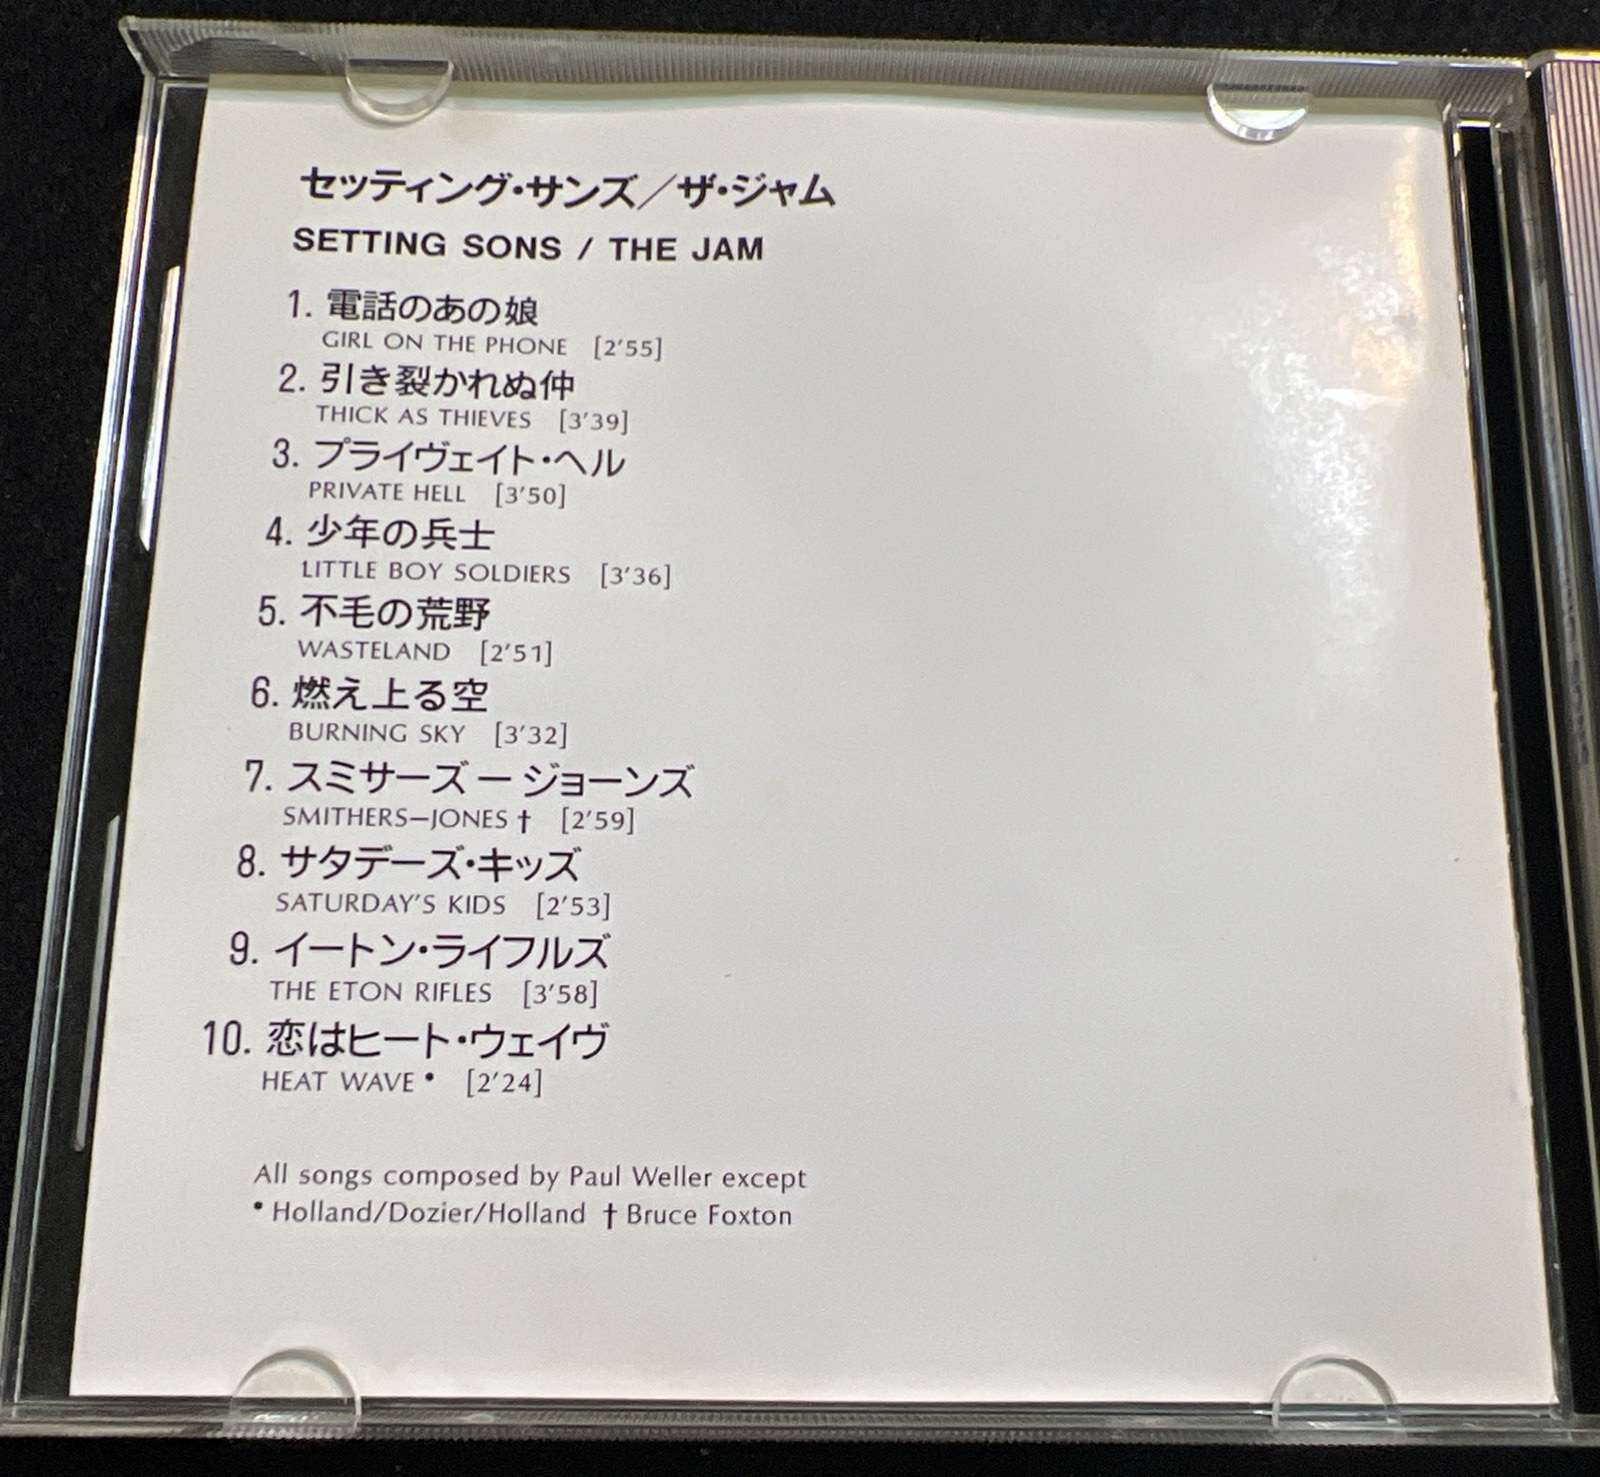 セッティング・サンズ／ザ・ジャム
SETTING SONS / THE JAM
1. 電話のあの娘
GIRL ON THE PHONE [2'55]
2. 引き裂かれぬ仲
THICK AS THIEVES [3'39]
3. プライヴェイト・ヘル
PRIVATE HELL [3'50]
4. 少年の兵士
LITTLE BOY SOLDIERS [3'36]
5. 不毛の荒野
WASTELAND [2'51]
6. 燃え上る空
BURNING SKY [3'32]
7. スミサーズ — ジョーンズ
SMITHERS—JONES † [2'59]
8. サタデーズ・キッズ
SATURDAY'S KIDS [2'53]
9. イートン・ライフルズ
THE ETON RIFLES [3'58]
10. 恋はヒート・ウェイヴ
HEAT WAVE • [2'24]
All songs composed by Paul Weller except
• Holland/Dozier/Holland † Bruce Foxton